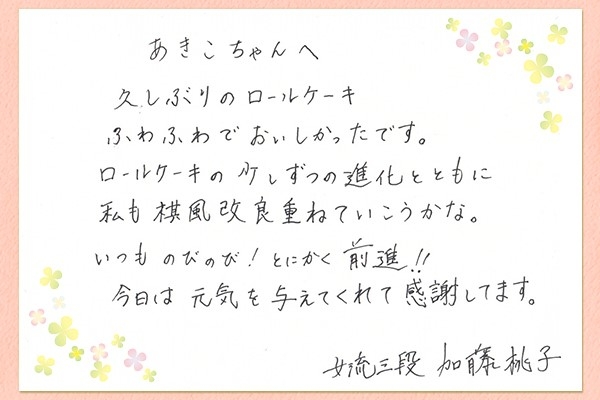 あきこちゃんへ
久しぶりのロールケーキ
ふわふわでおいしかったです。
ロールケーキの少しずつの進化とともに
私も棋風改良重ねていこうかな。
いつものびのび！とにかく前進!!
今日は元気を与えてくれて感謝してます。
女流三段 加藤桃子